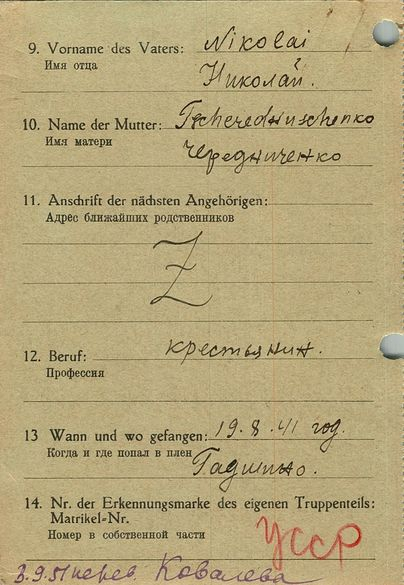 9. Vorname des Vaters: Nikolai
Имя отца
Николай.
10. Name der Mutter: Tscherednuschenko
Имя матери
Чередниченко
11. Anschrift der nächsten Angehörigen:
Адрес ближайших родственников
Z
12. Beruf: крестьянин.
Профессия
13 Wann und wo gefangen: 19.8.41 год.
Когда и где попал в плен
14. Nr. der Erkennungsmarke des eigenen Truppenteils:
Matrikel-Nr.
Номер в собственной части
УССР
3.9.51 перев. Ковалева